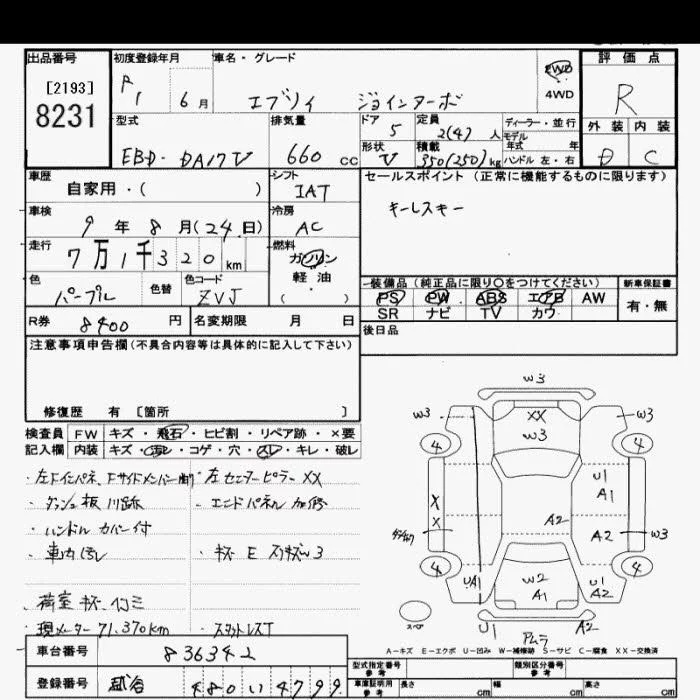 出品番号 初度登録年月 車名・グレード 評価点
[2193]
8231
R1 6月 エブリイ ジョインターボ 2WD 4WD R
型式 排気量 ドア 5 定員 2(4)人 ディーラー・並行 外装 内装
EBD-DA17V 660cc 形状 V 積載 350(250)kg モデル年式 年 ハンドル 左・右 D C
車歴 自家用・( ) シフト IAT セールスポイント(正常に機能するものに限ります)
キーレスキー
車検 9年8月(24日) 冷房 AC
走行 7万1千320km 燃料 ガソリン 軽油 ( )
色 パープル 色替 色コード ZVJ
装備品(純正品に限り〇をつけてください) 新車保証書
PS PW ABS エアB AW 有・無
SR ナビ TV カワ
R券 8400円 名変期限 月 日 後日品
注意事項申告欄(不具合内容等は具体的に記入して下さい)
修復歴 有 〔箇所 〕
検査員 FW キズ・飛石・ヒビ割・リペア跡・×要
記入欄 内装 キズ・汚レ・コゲ・穴・スレ・キレ・破レ
・左Fインパネ、Fサイドメンバー ・左センターピラー XX
・ダッシュ板 ・エンドパネル 加修
・ハンドルカバー付
・車内汚レ ・キズ E スリキズ
・荷室キズ・凹ミ
・現メーター71,370km ・スタットレスT
W3
W3 XX W3
W3
4 4
U1
A1
X
X
A2 A2 W3
4 4
UA1 W2 U1
A1 A2
スペア U1 A2
A-キズ E-エクボ U-凹み W-補修跡 S-サビ C-腐食 XX-交換済
車台番号 836342
登録番号 480 い 4799
型式指定番号 参考 類別区分番号 参考
車庫証明用 参考 長さ cm 幅 cm 高さ cm